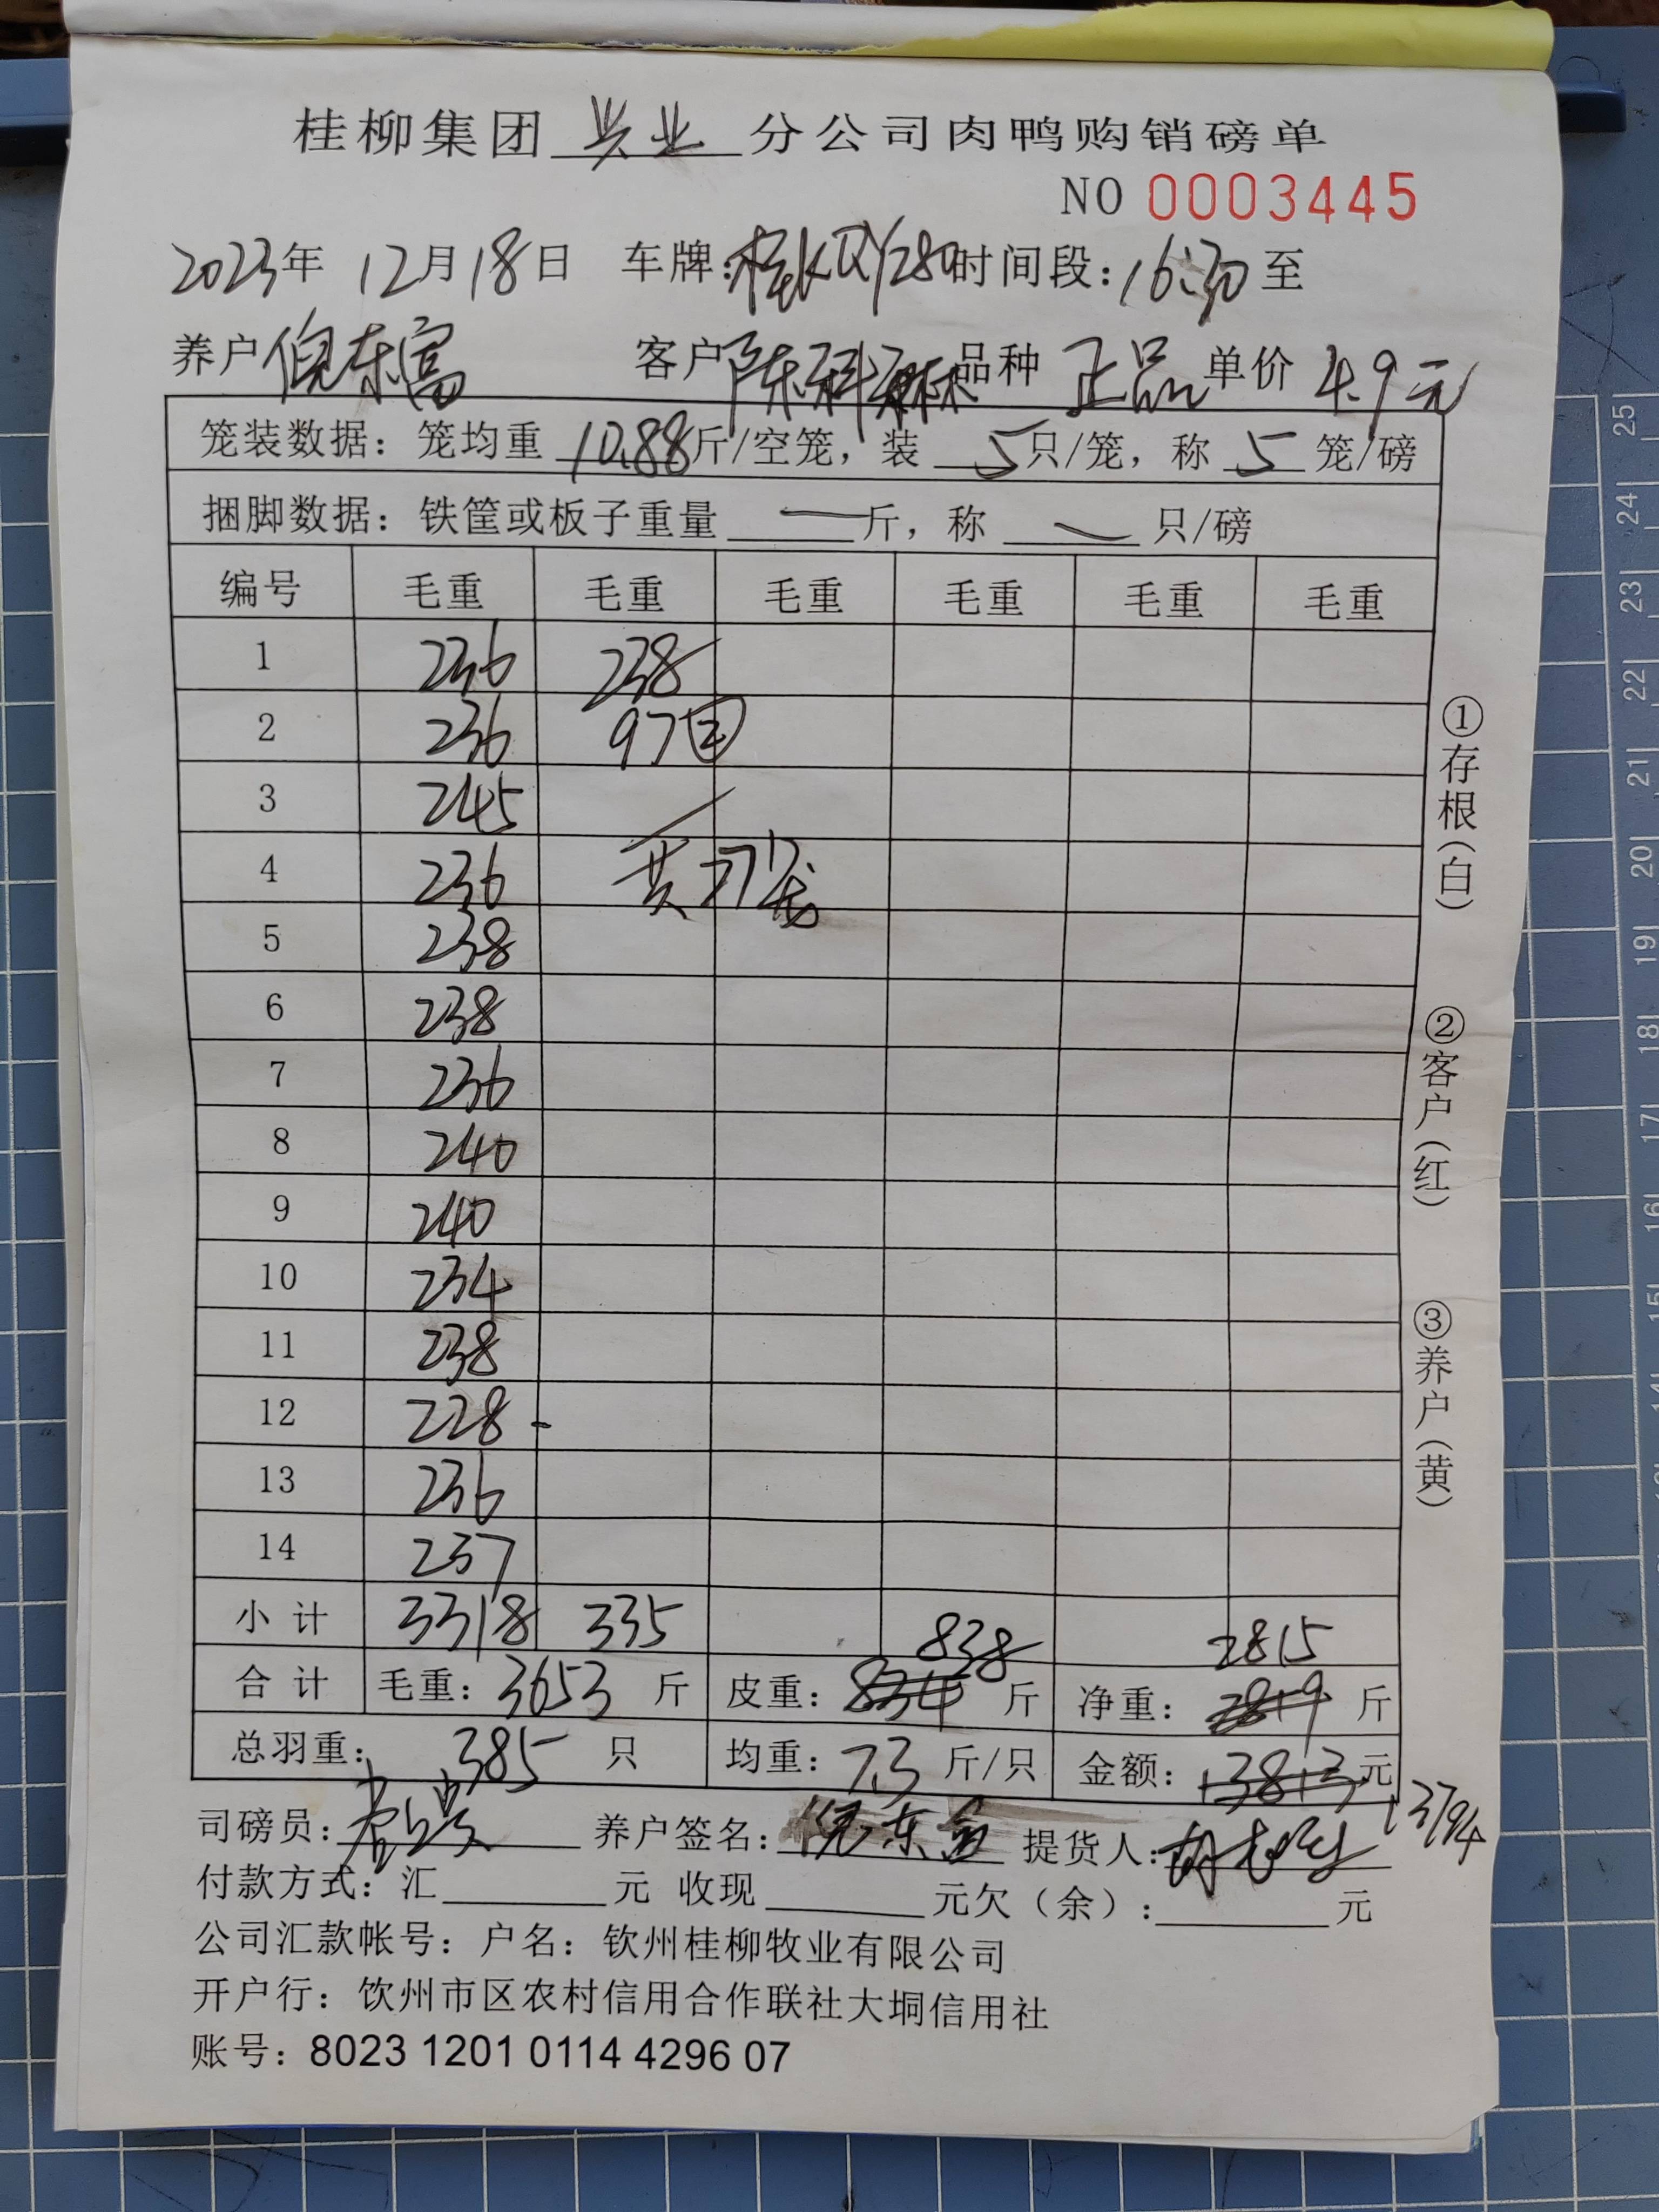 桂柳集团 兴业 分公司肉鸭购销磅单
NO 0003445
2023年 12月18日 车牌: 时间段: 16:30 至
养户 倪东富 客户 陈科 品种 正品 单价 4.9元
笼装数据: 笼均重 10.88 斤/空笼, 装 5 只/笼, 称 5 笼/磅
捆脚数据: 铁筐或板子重量 — 斤, 称 — 只/磅
编号 毛重 毛重 毛重 毛重 毛重 毛重
1 236 238
2 236 97
3 245
4 236 共77笼
5 238
6 238
7 236
8 240
9 240
10 234
11 238
12 228
13 236
14 237
小计 3318 335 838 2815
合计 毛重: 3653 斤 皮重: 834 斤 净重: 2819 斤
总羽重: 385 只 均重: 7.3 斤/只 金额: 13813 元
13794
司磅员: 养户签名: 倪东富 提货人:
付款方式: 汇 元 收现 元欠（余）: 元
公司汇款帐号: 户名: 钦州桂柳牧业有限公司
开户行: 饮州市区农村信用合作联社大垌信用社
账号: 8023 1201 0114 4296 07
①存根（白）
②客户（红）
③养户（黄）
25
24
23
22
21
20
19
18
17
16
15
14